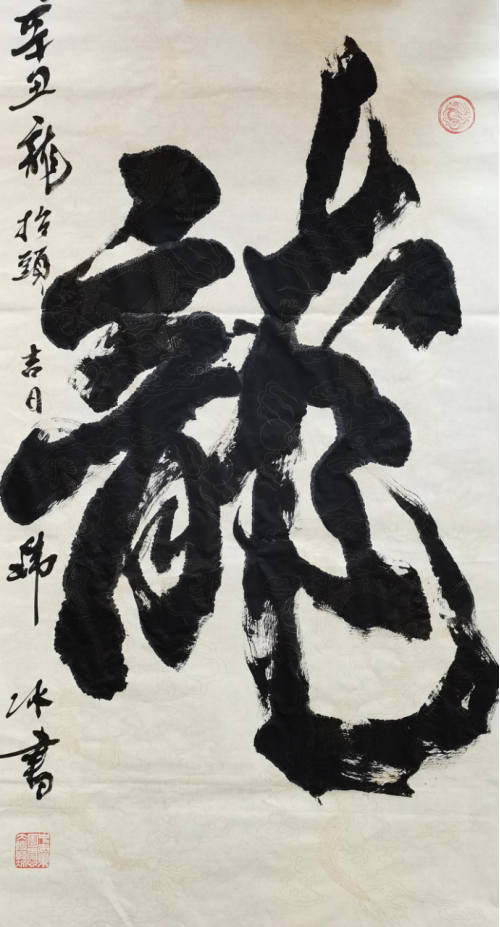 龍
辛丑龍抬頭吉日
冰書